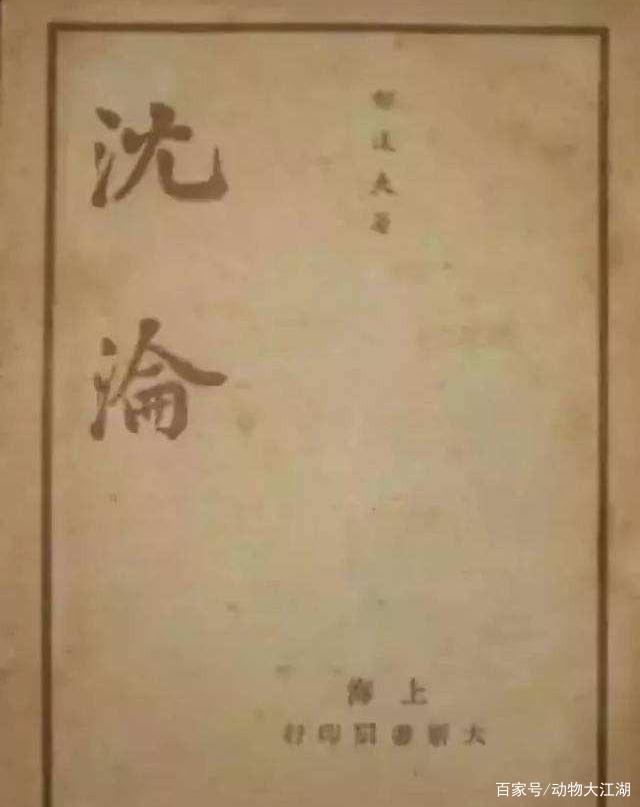 郁達夫著
沈淪
上海
大新書局印行
百家号/动物大江湖